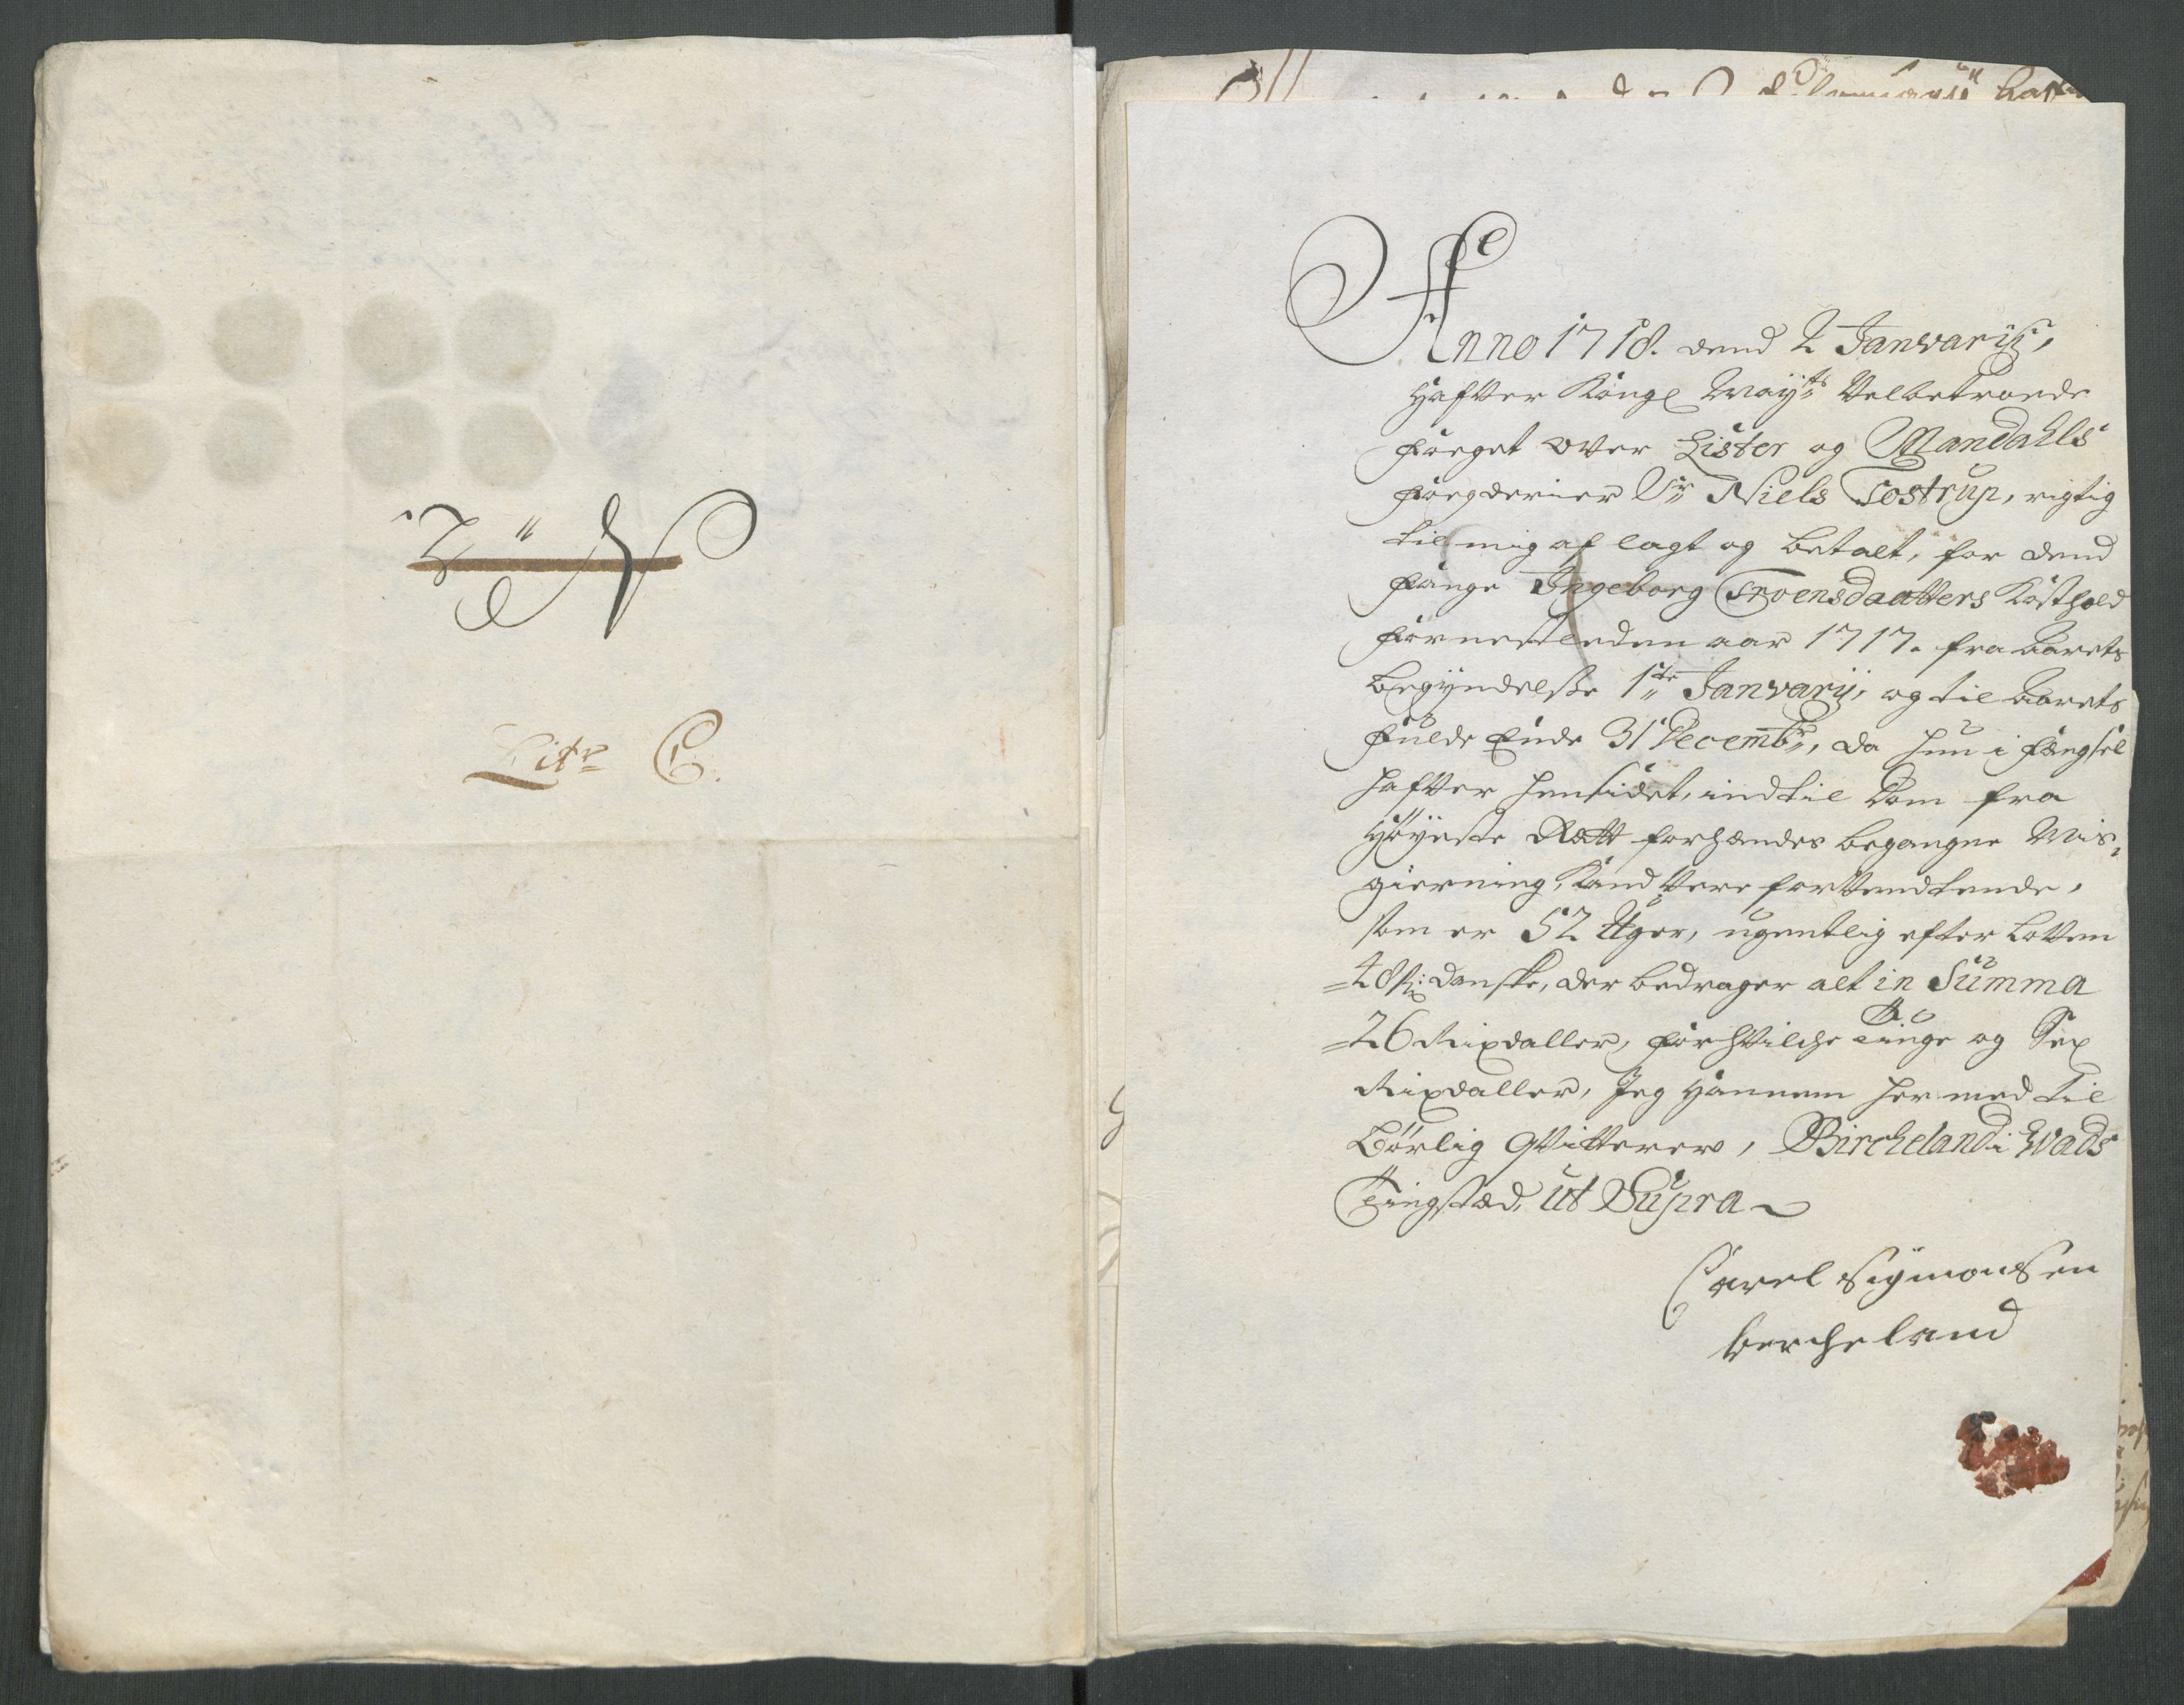 Litr C.
Anno 1718. dend 2 Janvarij,
Hafver Kongl Mayts Velbetroede
Foeget over Lister og Mandahls
Foegderier Sr Niels Tostrup, rigtig
til mig aflagt og betalt, for dend
Fange Ingeborg Troensdaatters Kosthold
for nestleden aar 1717. fra aarets
begyndelsse 1ste Janvarij, og til aarets
fulde Ende 31 Decembr, da hun i fengsel
hafver hensidet, indtil Dom fra
Høyeste Rætt for hendes begangne Mis-
gierning, Kand vere forventende,
som er 52 Uger, ugentlig efter Loven
48 s: danske, der bedrager alt in Summa
26 Rixdaller, for hvilche Tiuge og Sex
Rixdaller, Jeg Hannem her med til
Børlig Qvitterer, Bircheland i Wads
Tingstæd, ut Supra
Carel Sÿmonsen
bercheland